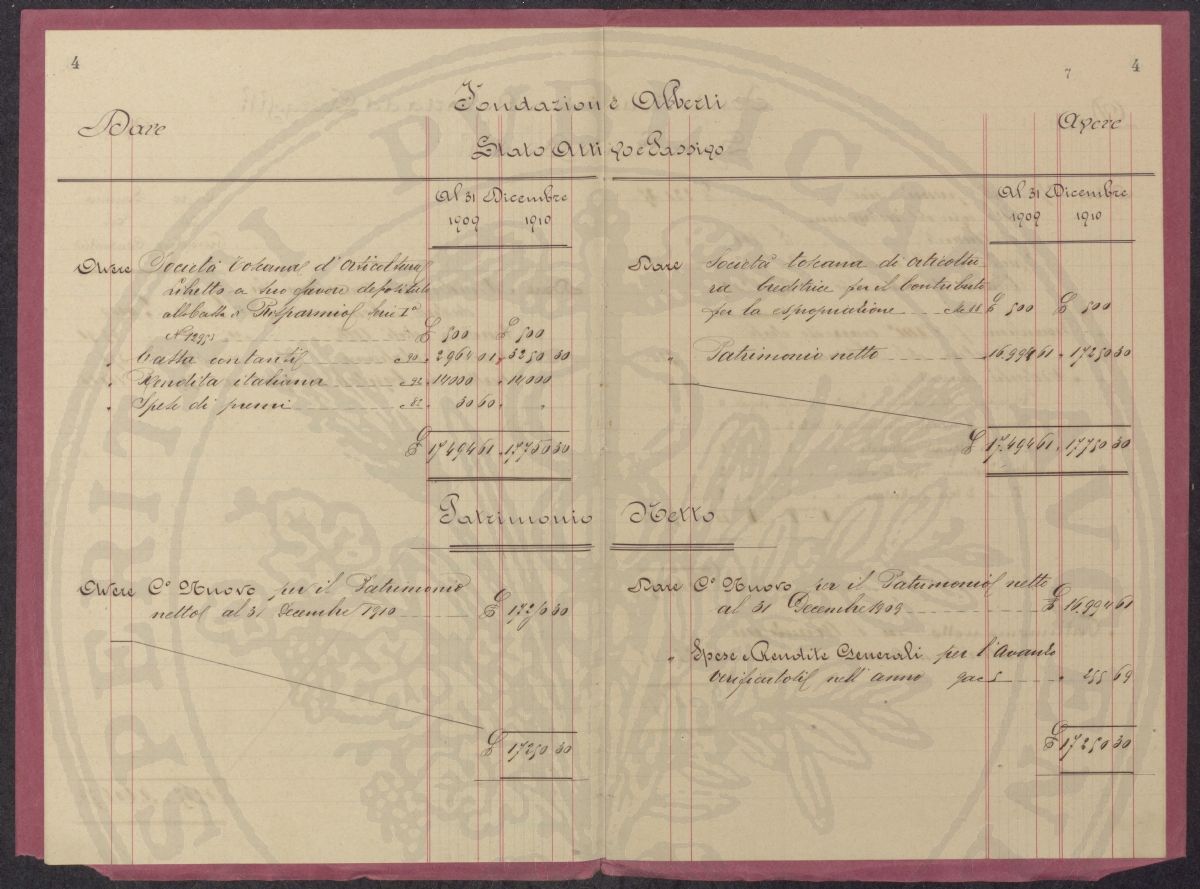 4
7 4
Fondazione Alberti
Dare
Avere
Stato Attivo e Passivo
Al 31 Dicembre
1909 1910
Avere Società toscana d'Orticultura
a suo favore depositato
alla Cassa di Risparmio Serie Iª
N° 12951 £ 500 £ 500
" Cassa contanti 90 " 2964 01 " 3250 30
" Rendita italiana 92 " 14000 " 14000
" Spese di premi 82 " 30 60 " "
£ 17494 61 " 17750 30
Al 31 Dicembre
1909 1910
Dare Società toscana di Orticultu
ra creditrice per il Contributo
per la espropriazione £ 500 £ 500
" Patrimonio netto 16.994 61 " 17250 30
£ 17.494 61 " 17750 30
Patrimonio Netto
Avere C° Nuovo per il Patrimonio
netto al 31 Decembre 1910 £ 17250 30
£ 17250 30
Dare C° Nuovo per il Patrimonio netto
al 31 Decembre 1909 £ 16.994 61
" Spese e Rendite Generali per l'Avanzo
verificatosi nell'anno 5 " 255 69
£ 17250 30
SPIRIT I PUBLICA